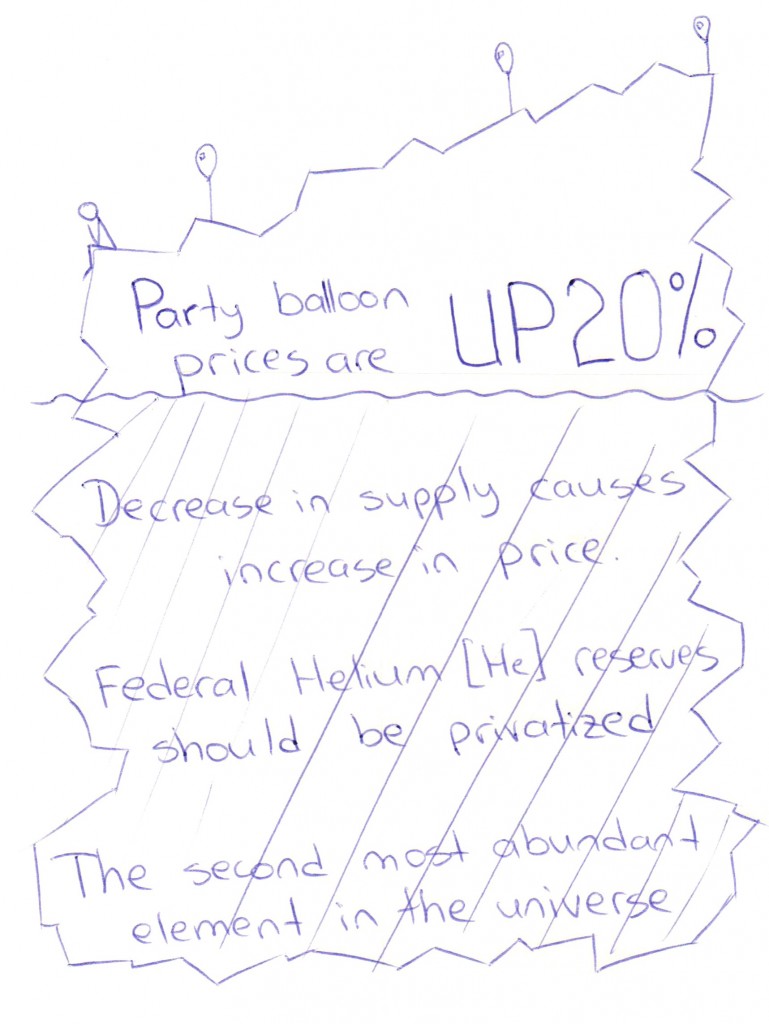 Party balloon
prices are
UP 20%
Decrease in supply causes
increase in price.
Federal Helium [He] reserves
should be privatized
The second most abundant
element in the universe